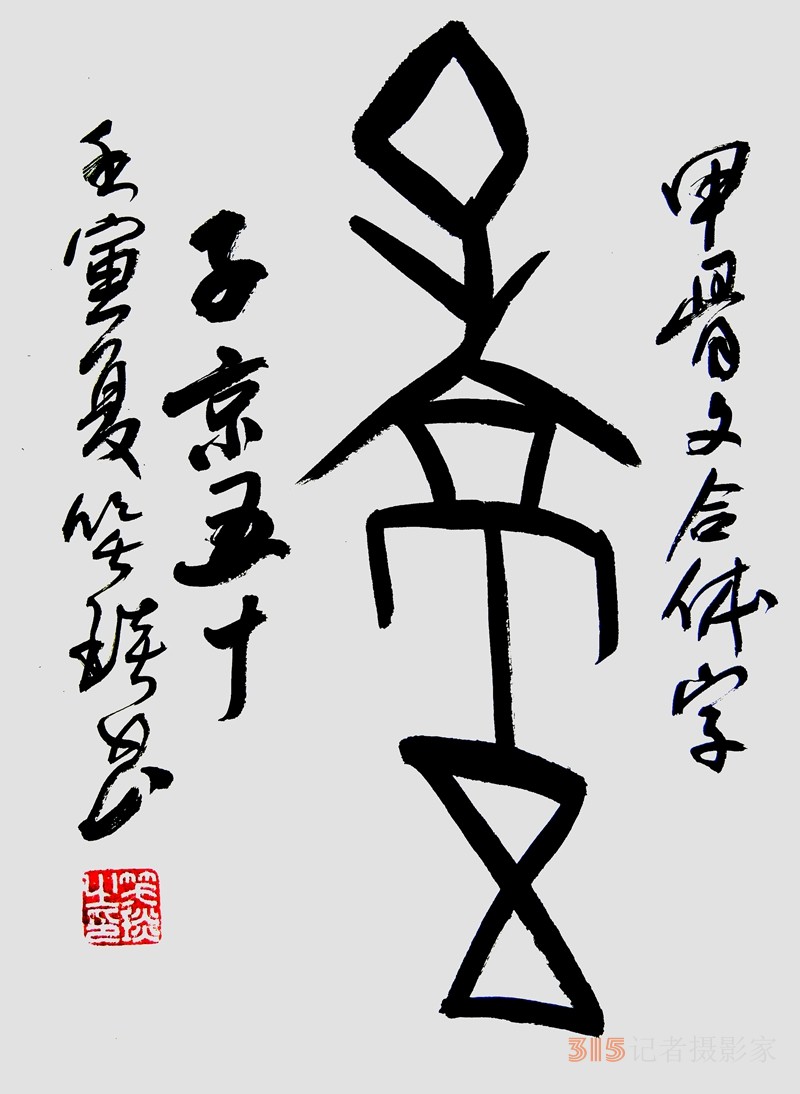 甲骨文合体字
子京五十
壬寅夏笑琰书
笑琰之印
315记者摄影家